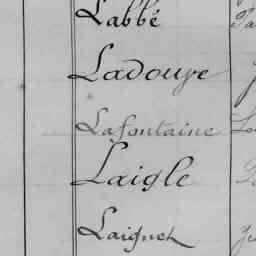 Labbé
Ladouye
Lafontaine
Laigle
Laignel